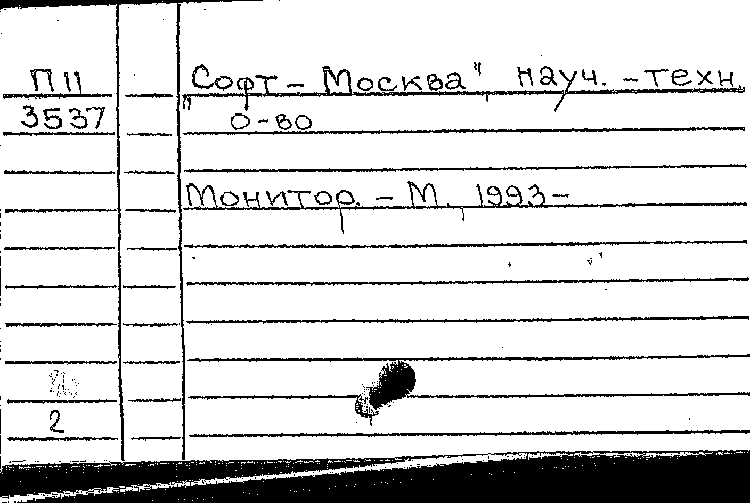 П 11
3537
„Софт - Москва", науч. - техн.
о-во
Монитор. - М., 1993-
2